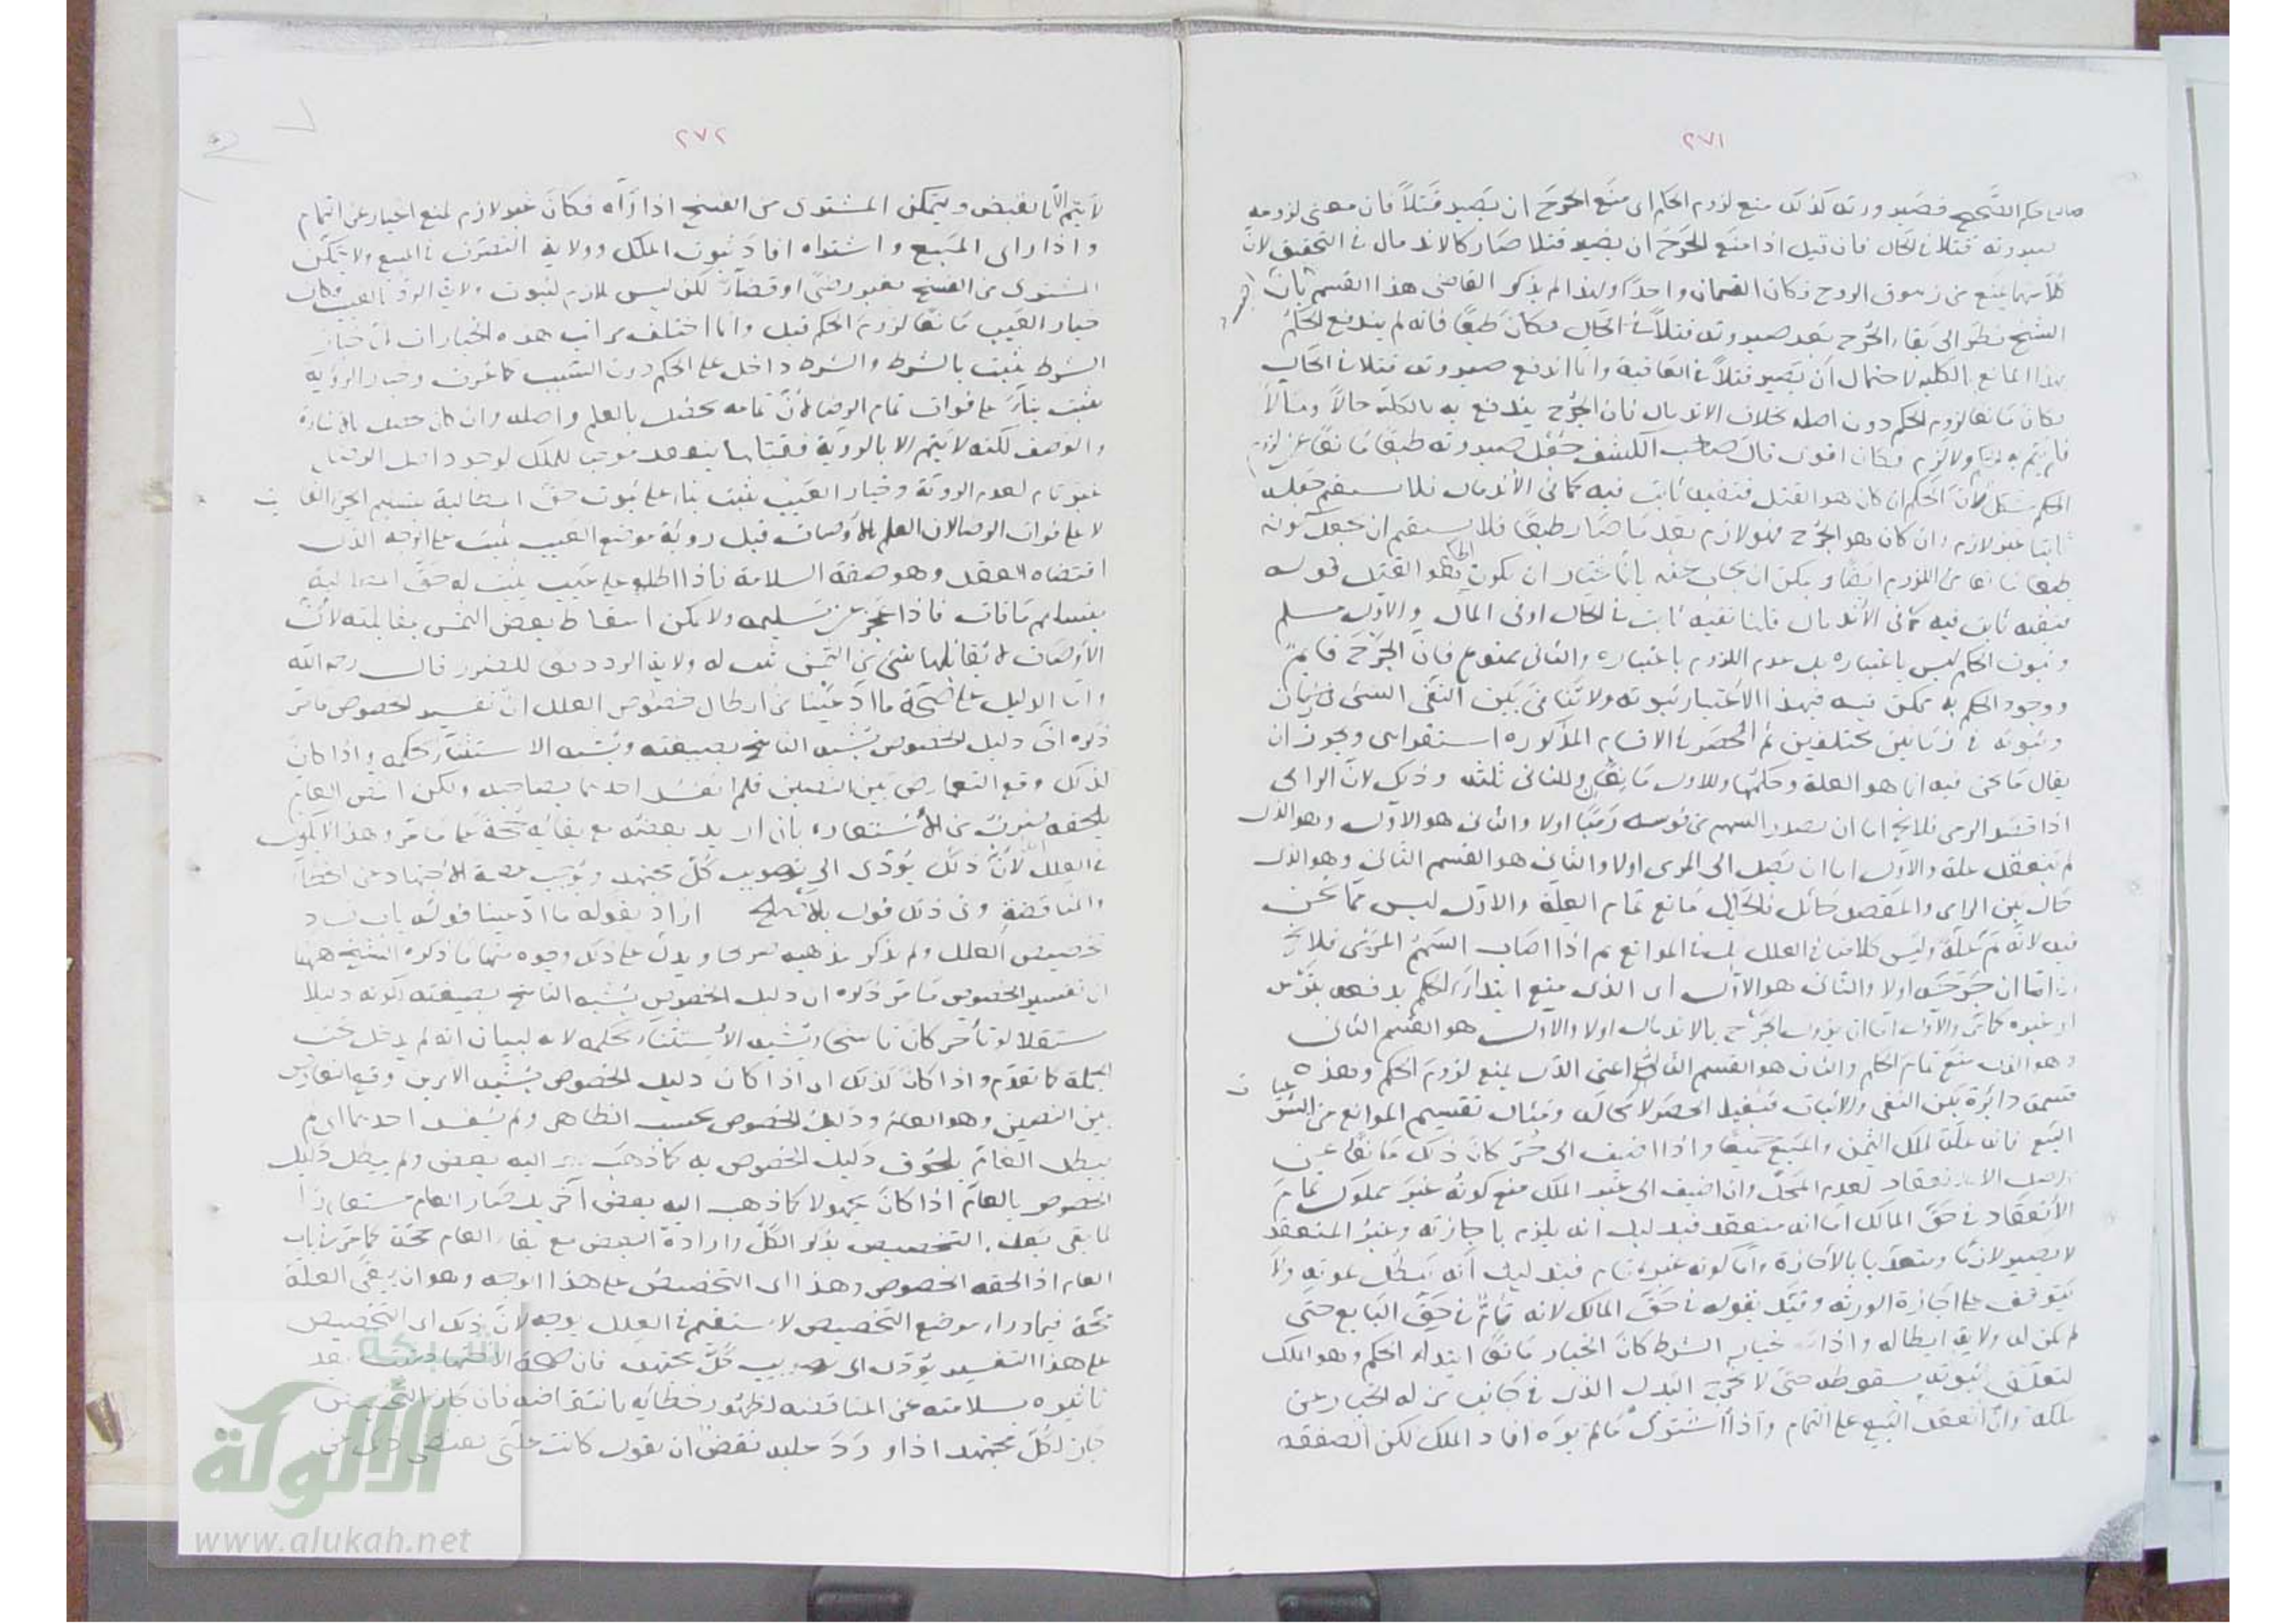 ٢٧١
حكم الصحيح فصيرورته كذلك منع لزوم الحكم اى منع الجرح ان يصير قتلا فان معنى لزومه
صيرورته قتلا فى الحال فان قيل اذا منع الجرح ان يصير قتلا صار كالاندمال فى التحقيق لان
كلا منهما يمنع من زهوق الروح فكان القسمان واحدا ولهذا لم يذكر القاضى هذا القسم
الشيخ نظر الى بقاء الجرح بعد صيرورته قتلا فى الحال فكان طبعا فانه لم يندفع الحكم
بهذا المانع بالكلية لاحتمال ان يصير قتلا فى العاقبة وانما اندفع صيرورته قتلا فى الحال
فكان مانعا لزوم الحكم دون اصله بخلاف الاندمال فان الجرح يندفع به بالكلية حالا ومآلا
فكان اقوى قال صاحب الكشف جعل صيرورته طبعا مانعا عن لزوم
الحكم مشكل لان الحكم ان كان هو القتل فنفيه ثابت فيه كما فى الاندمال فلا يستقيم جعله
ثابتا غير لازم وان كان هو الجرح فهو لازم بعد ما صار طبعا فلا يستقيم ان يجعل كونه
طبعا مانعا من اللزوم ايضا ويمكن ان يجاب عنه بانا نختار ان يكون الحكم هو القتل قوله
فنفيه ثابت فيه كما فى الاندمال قلنا نفيه ثابت فى الحال او فى المال والاول مسلم
وثبوت الحكم ليس باعتباره بل عدم اللزوم باعتباره والثانى ممنوع فان الجرح قائم
ووجود الحكم به ممكن فيه فبهذا الاعتبار ثبوته ولا تنافى بين النفى الشئ فى زمان
وثبوته فى زمانين مختلفين ثم الحصر فى الاقسام المذكورة استقرائى ويجوز ان
يقال ما نحن فيه انما هو العلة وحكمها وللاول مانعان وللثانى ثلثة وذلك لان الرامى
اذا قصد الرمى فلا يخ اما ان يصدر السهم من قوسه رميا اولا والثانى هو الاول وهو الذى
لم ينعقد علة والاول اما ان يصل الى المرمى اولا والثانى هو القسم الثانى وهو الذى
حال بين الرامى والمقصد حائل فالحائل مانع تمام العلة والاول ليس مما نحن
فيه لانه تم علة وليس كلامنا فى العلل بل فى الموانع ثم اذا اصاب السهم المرمى فلا يخ
اما ان جرحه اولا والثانى هو الاول اى الذى منع ابتداء الحكم بدفعه بترس
او غيره كما مر والاول اما ان يزول الجرح بالاندمال اولا والاول هو القسم الثانى
وهو الذى منع تمام الحكم والثانى هو القسم الثالث اعنى الذى يمنع لزوم الحكم وهذه
قسمة دائرة بين النفى والاثبات فتفيد الحصر لا محالة ومثال تقسيم الموانع من الشرعيات
البيع فانه علة لملك الثمن والمبيع جميعا واذا اضيف الى حر كان ذلك مانعا عن
اصل الانعقاد لعدم المحل وان اضيف الى غير الملك منع كونه غير مملوك تمام
الانعقاد فى حق المالك اما انه منعقد فبدليل انه يلزم باجازته وغير المنعقد
لا يصير لازما ومنعقدا بالاجازة واما كونه غير تام فبدليل انه يبطل بموته ولا
يتوقف على اجازة الورثة وقيد بقوله فى حق المالك لانه تام فى حق البايع حتى
لم يكن له ولاية ابطاله واذا بخيار الشرط كان الخيار مانعا ابتداء الحكم وهو الملك
لتعلق ثبوته بسقوطه حتى لا يخرج البدل الذى فى جانب من له الخيار عن
ملكه وان انعقد البيع على التمام واذا اشترى مالم يره افاد الملك لكن الصفقة
٢٧٢
لا يتم الا بالقبض ويتمكن المشترى من الفسخ اذا رآه فكان غير لازم لمنع الخيار عن اتمام
واذا راى المبيع واشتراه افاد ثبوت الملك وولاية التصرف فى المبيع ولا يتمكن
المشترى من الفسخ بغير رضى او قضاء لكن ليس بلازم لثبوت ولاية الرد بالعيب فكان
خيار العيب مانعا لزوم الحكم قيل وانما اختلف مراتب هذه الخيارات لان خيار
الشرط يثبت بالشرط والشرط داخل على الحكم دون السبب كما عرف وخيار الرؤية
يثبت بناء على فوات تمام الرضا لان تمامه يحصل بالعلم واصله وان كان حصل بالاشارة
والوصف لكنه لا يتم الا بالرؤية فقبلها ينعقد موجبا للملك لوجود اصل الرضا
غير تام لعدم الرؤية وخيار العيب يثبت بناء على ثبوت حق المطالبة بتسليم الجزء الفائت
لا على فوات الرضا لان العلم بالاوصاف قبل رؤية موضع العيب يثبت على الوجه الذى
اقتضاه العقد وهو صفة السلامة فاذا اطلع على عيب يثبت له حق المطالبة
بتسليم مافات فاذا عجز عن تسليمه ولا يمكن اسقاط بعض الثمن بمقابلته لان
الاوصاف لا يقابلها شئ من الثمن ثبت له ولاية الرد دفعا للضرر قال رحمه الله
واما الدليل على صحة ما ادعينا من ابطال خصوص العلل ان تفسير الخصوص ما مر
ذكره ان دليل الخصوص يشبه الناسخ بصيغته ويشبه الاستثناء بحكمه واذا كان
كذلك وقع التعارض بين النصين فلم يفسد احدهما بصاحبه ولكن النص العام
يلحقه ضرب من الاستعارة بان اريد بعضه مع بقائه حجة على ما مر وهذا لا يكون
فى العلل لان ذلك يؤدى الى تصويب كل مجتهد ويوجب عصمة الاجتهاد عن الخطأ
والمناقضة وفى ذلك قول بالاصلح اراد بقوله ما ادعينا قوله باب فساد
تخصيص العلل ولم يذكر مذهبه صريحا ويدل على ذلك وجوه منها ما ذكره الشيخ ههنا
ان تفسير الخصوص ما مر ذكره ان دليل الخصوص يشبه الناسخ بصيغته لكونه دليلا
مستقلا لو تأخر كان ناسخا ويشبه الاستثناء بحكمه لانه لبيان انه لم يدخل تحت
الجملة كما تقدم واذا كان كذلك اى اذا كان دليل الخصوص يشبه الامرين وقع التعارض
بين النصين وهو العام ودليل الخصوص بحسب الظاهر ولم يفسد احدهما اى لم
يبطل العام بلحوق دليل الخصوص به كما ذهب اليه بعض ولم يبطل دليل
الخصوص بالعام اذا كان مجهولا كما ذهب اليه بعض آخر بل صار العام مستعارا
لما بقى بعد التخصيص بذكر الكل وارادة البعض مع بقاء العام حجة كما مر فى باب
العام اذا لحقه الخصوص وهذا اى التخصيص على هذا الوجه وهو ان يبقى العلة
حجة فيما وراء موضع التخصيص لا يستقيم فى العلل بوجه لان ذلك اى التخصيص
على هذا التفسير يؤدى الى تصويب كل مجتهد فان صحة الاجتهاد بعد
تاثيره بسلامته عن المناقضة لظهور خطائه بانتقاضه فان جاز التخصيص
جاز لكل مجتهد اذا ورد عليه نقض ان يقول كانت علتى
شبكة
الألوكة
www.alukah.net